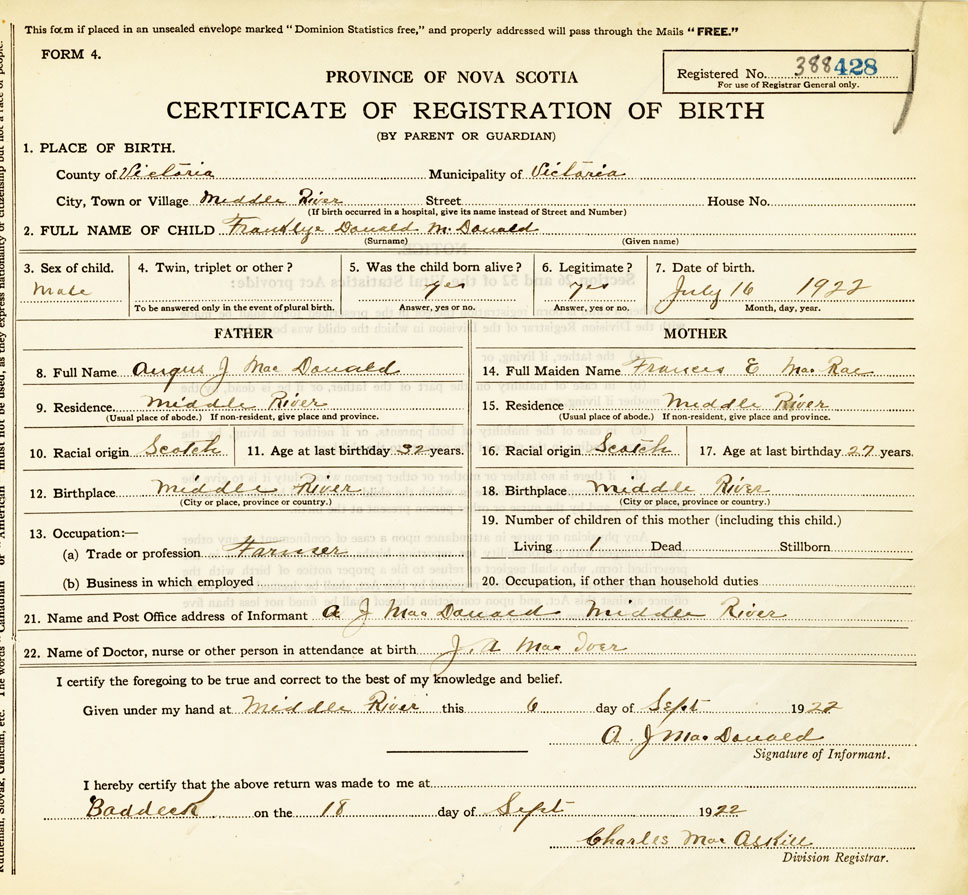 This form if placed in an unsealed envelope marked "Dominion Statistics free," and properly addressed will pass through the Mails "FREE."
FORM 4.
Registered No. 388428
For use of Registrar General only.
PROVINCE OF NOVA SCOTIA
CERTIFICATE OF REGISTRATION OF BIRTH
(BY PARENT OR GUARDIAN)
1. PLACE OF BIRTH.
County of Victoria Municipality of Victoria
City, Town or Village Middle River Street House No.
(If birth occurred in a hospital, give its name instead of Street and Number)
2. FULL NAME OF CHILD Donald McDonald
(Surname) (Given name)
3. Sex of child. 4. Twin, triplet or other? 5. Was the child born alive? 6. Legitimate? 7. Date of birth.
Male yes yes July 16 1922
To be answered only in the event of plural birth. Answer, yes or no. Answer, yes or no. Month, day, year.
FATHER MOTHER
8. Full Name Angus J Mac Donald 14. Full Maiden Name Frances E Mac Rae
9. Residence Middle River 15. Residence Middle River
(Usual place of abode.) If non-resident, give place and province. (Usual place of abode.) If non-resident, give place and province.
10. Racial origin Scotch 11. Age at last birthday 32 years. 16. Racial origin Scotch 17. Age at last birthday 27 years.
12. Birthplace Middle River 18. Birthplace Middle River
(City or place, province or country.) (City or place, province or country.)
13. Occupation:— 19. Number of children of this mother (including this child.)
(a) Trade or profession Farmer Living 1 Dead Stillborn
(b) Business in which employed 20. Occupation, if other than household duties
21. Name and Post Office address of Informant A J Mac Donald Middle River
22. Name of Doctor, nurse or other person in attendance at birth J. A Mac Iver
I certify the foregoing to be true and correct to the best of my knowledge and belief.
Given under my hand at Middle River this 6 day of Sept 1922
A. J Mac Donald
Signature of Informant.
I hereby certify that the above return was made to me at
Baddeck on the 18 day of Sept 1922
Charles Mac Askill
Division Registrar.